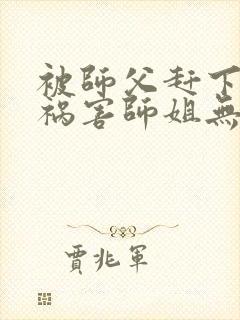 被師父赶下
禍害師姐無
賈兆軍